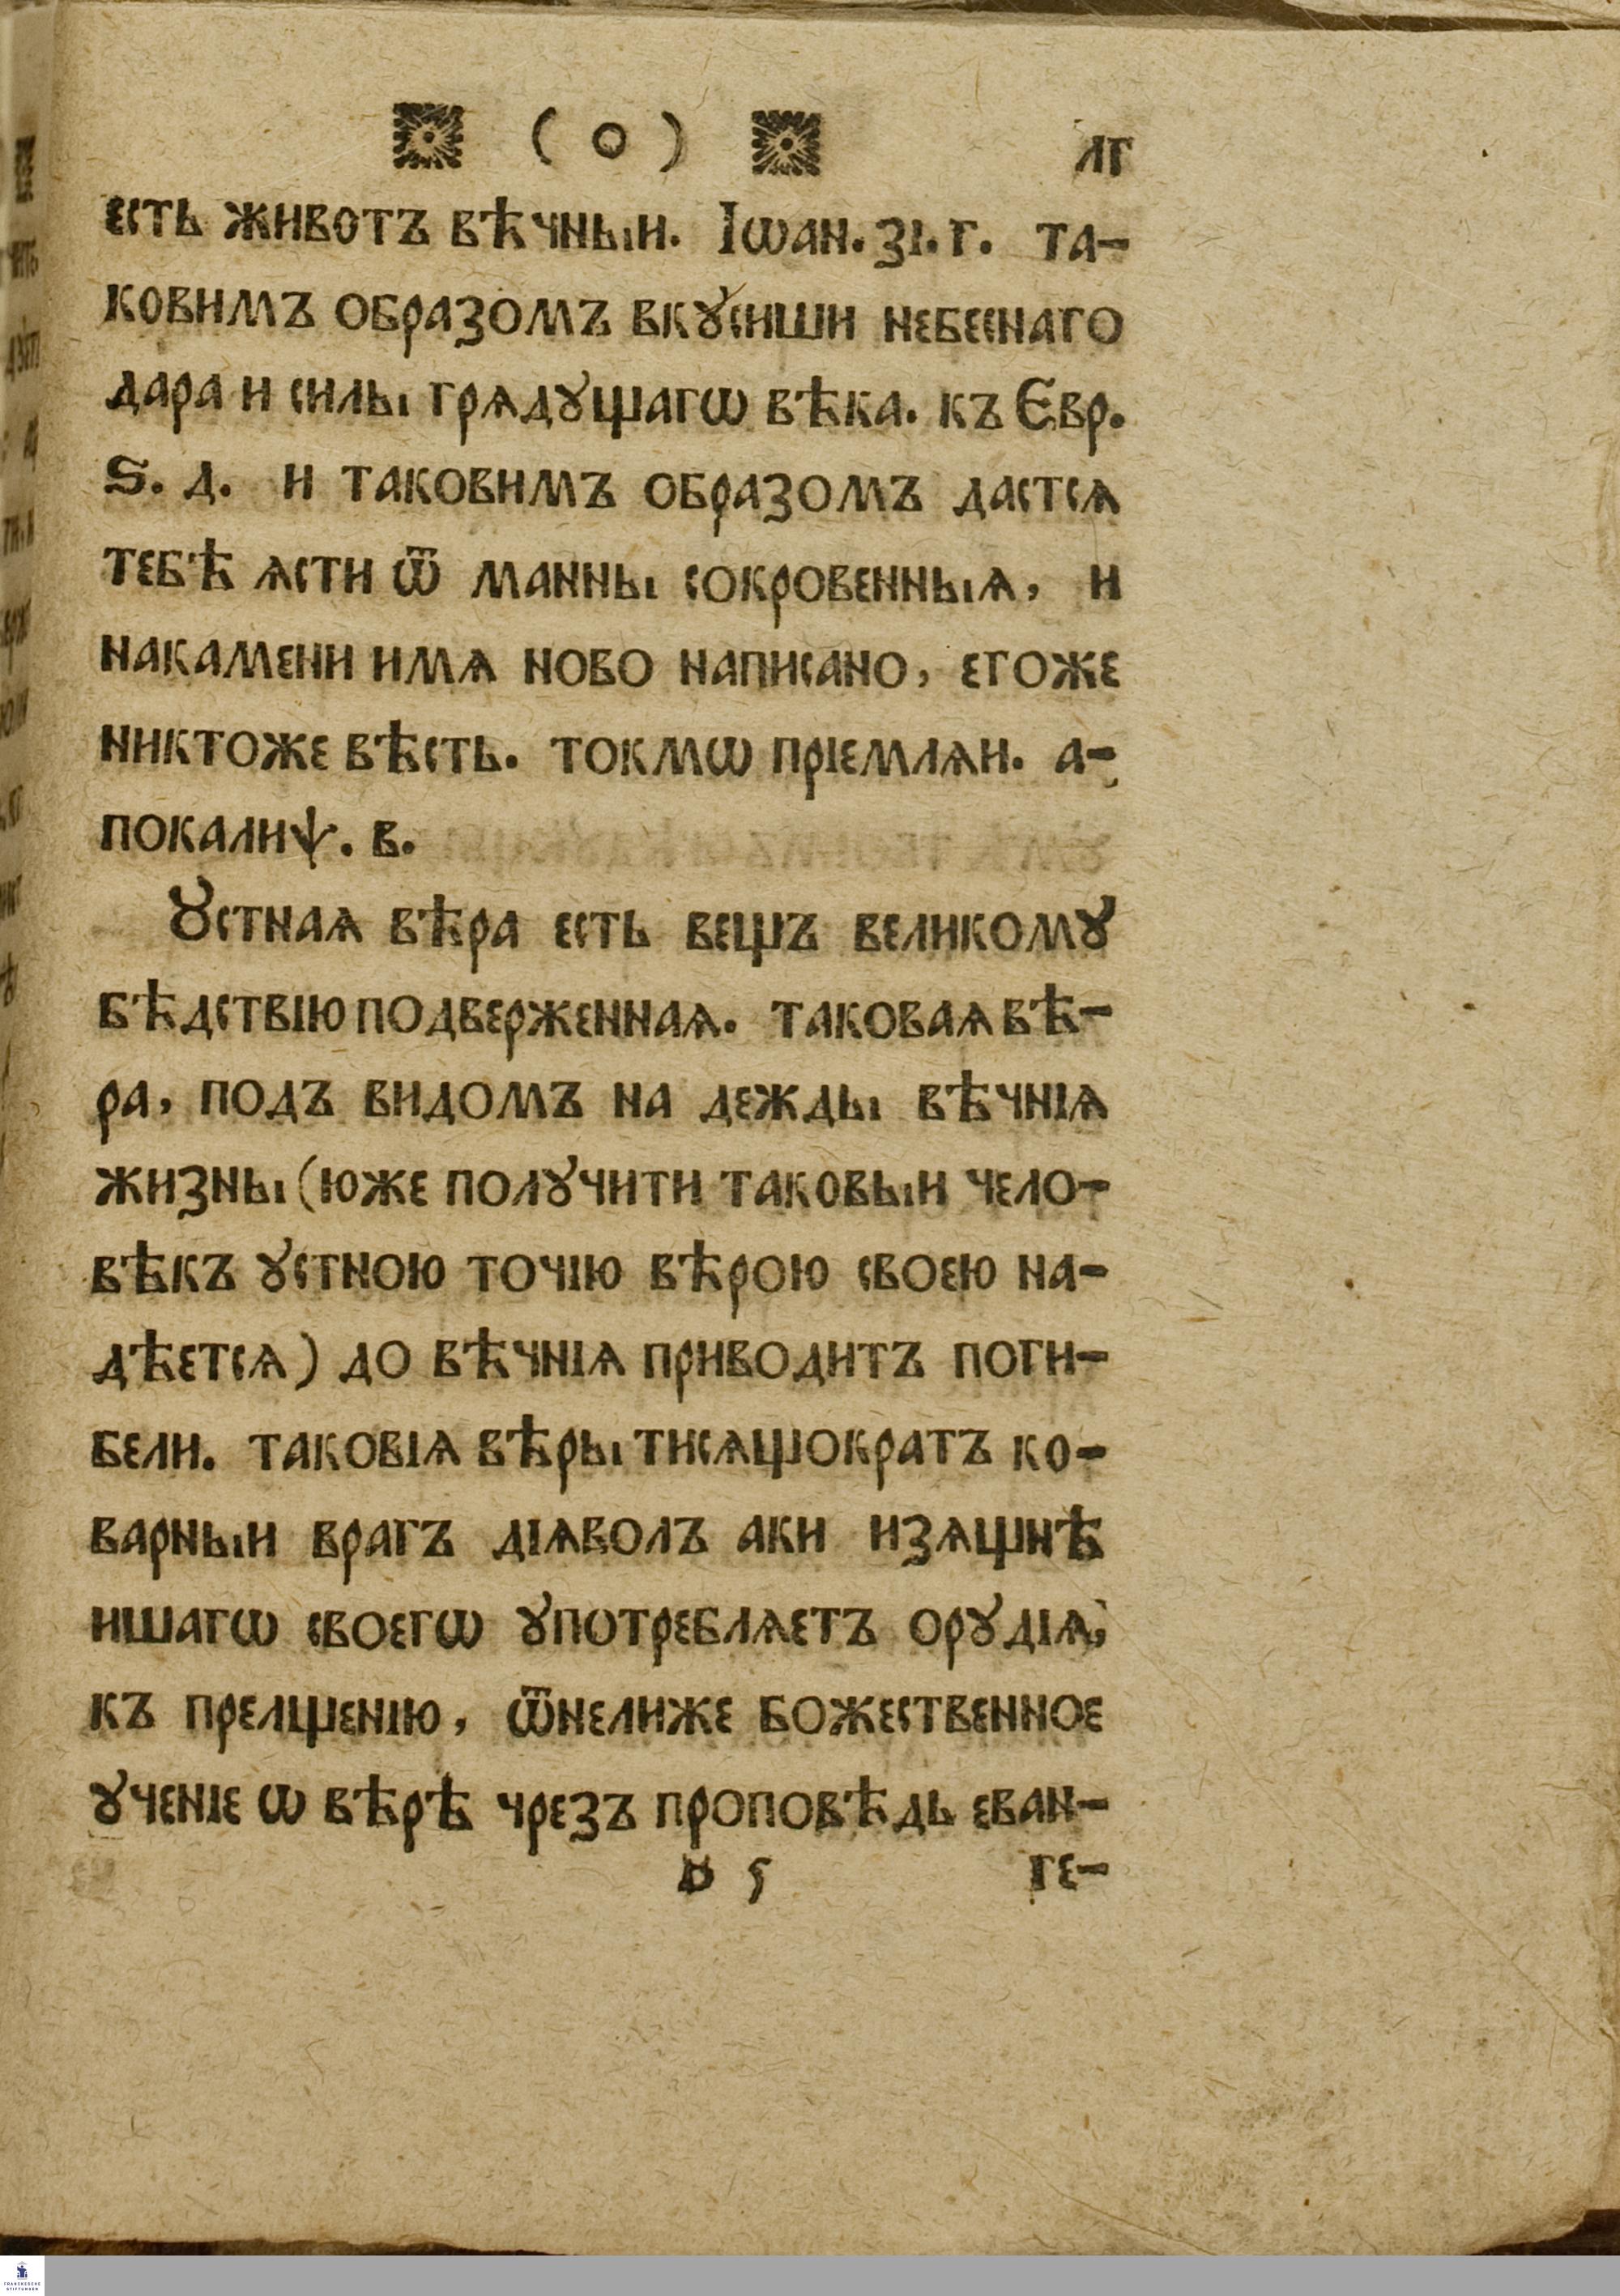 ( о ) лг
есть животъ вѣчный. Іѡан. зі. г. та-
ковимъ образомъ вкꙋсиши небеснаго
дара и силы грѧдꙋщагѡ вѣка. къ Евр.
Ѕ. д. и таковимъ образомъ дастсѧ
тебѣ ѧсти ѿ манны сокровенныѧ, и
накамени имѧ ново написано, егоже
никтоже вѣсть. токмѡ пріемлѧи. а-
покалиѱ. в.
Ꙋстнаѧ вѣра есть вещъ великомꙋ
бѣдствію подверженнаѧ. таковаѧ вѣ-
ра, подъ видомъ на дежды вѣчніѧ
жизны (юже полꙋчити таковый чело-
вѣкъ ꙋстною точію вѣрою своею на-
дѣетсѧ) до вѣчніѧ приводитъ поги-
бели. таковіѧ вѣры тисѧщократъ ко-
варный врагъ діѧволъ аки изѧщнѣ
ишагѡ своегѡ ꙋпотреблѧетъ орꙋдіѧ,
къ прелщенію, ѿнелиже божественное
ꙋченіе ѡ вѣрѣ чрезъ проповѣдь еван-
ге-